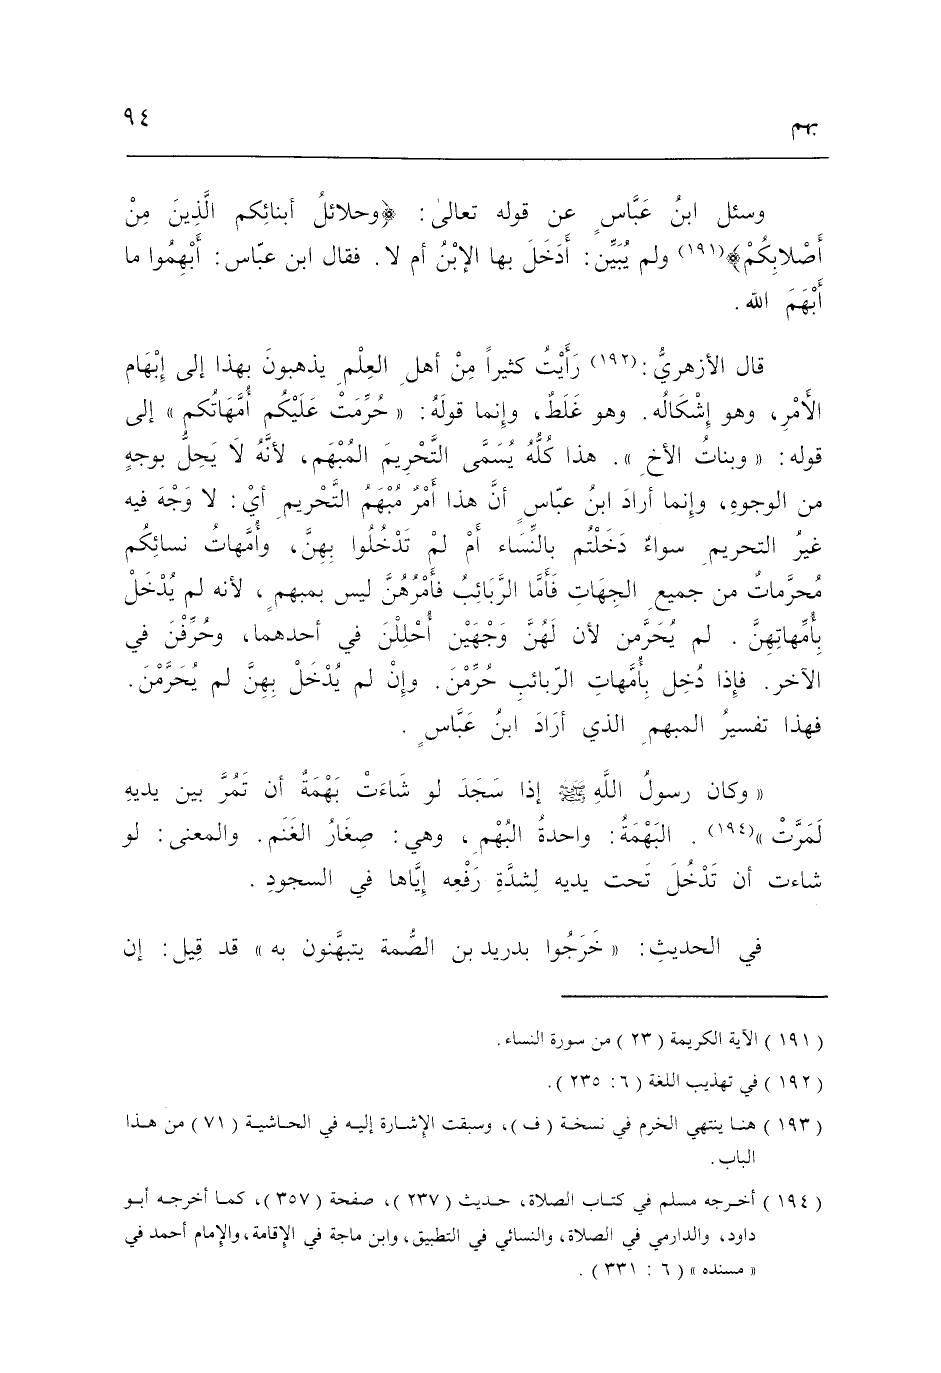 بهم ٩٤
وسئل ابنُ عَبَّاسٍ عن قوله تعالىٰ: ﴿وحلائلُ أبنائِكم الَّذِينَ مِنْ
أَصْلابِكُمْ﴾(١٩١) ولم يُبَيِّن: أَدَخَلَ بها الإبْنُ أم لا. فقال ابن عبّاس: أَبْهِمُوا ما
أَبْهَمَ الله.
قال الأزهريُّ:(١٩٢) رَأَيْتُ كثيراً مِنْ أهلِ العِلْمِ يذهبونَ بهذا إلى إِبْهَام
الأَمْرِ، وهو إِشْكَالُه. وهو غَلَطٌ، وإنما قولَهُ: « حُرِّمَتْ عَلَيْكُم أُمَّهَاتُكم » إلى
قوله: « وبناتُ الأخِ ». هذا كُلُّهُ يُسَمَّى التَّحْرِيمَ المُبْهَم، لأنَّهُ لَا يَحِلُّ بوجهٍ
من الوجوهِ، وإنما أرادَ ابنُ عبّاسٍ أنَّ هذا أَمْرٌ مُبْهَمُ التَّحْريمِ أيْ: لا وَجْهَ فيه
غيرُ التحريمِ سواءٌ دَخَلْتُم بالنِّسَاء أَمْ لمْ تَدْخُلُوا بِهِنَّ، وأُمَّهاتُ نسائِكُم
مُحرَّماتٌ من جميعِ الجِهَاتِ فَأَمَّا الرَّبَائِبُ فأَمْرُهُنَّ ليس بمبهمٍ، لأنه لم يُدْخَلْ
بِأُمِّهاتِهِنَّ . لم يُحَرَّمن لأن لَهُنَّ وَجْهَيْن أُحْلِلْنَ في أحدهما، وحُرِّفْنَ في
الآخر. فإِذا دُخِل بِأُمَّهاتِ الرّبائبِ حُرِّمْنَ. وإنْ لم يُدْخَلْ بِهِنَّ لم يُحَرَّمْنَ.
فهذا تفسيرُ المبهمِ الذي أرَادَ ابنُ عَبَّاسٍ .
« وكان رسولُ اللَّهِ ﷺ إذا سَجَدَ لو شَاءَتْ بَهْمَةٌ أن تَمُرَّ بين يديهِ
لَمَرَّتْ »(١٩٤) . البَهْمَةُ: واحدةُ البُهْمِ، وهي: صِغَارُ الغَنَم. والمعنى: لو
شاءت أن تَدْخُلَ تَحت يديه لِشدَّةِ رَفْعِه إيَّاها في السجودِ .
في الحديثِ: « خَرَجُوا بدريد بن الصُّمة يتبهَّنون به » قد قِيل: إن
( ١٩١ ) الآية الكريمة ( ٢٣ ) من سورة النساء.
( ١٩٢ ) في تهذيب اللغة ( ٦: ٢٣٥ ).
( ١٩٣ ) هنا ينتهي الخرم في نسخة ( ف )، وسبقت الإشارة إليه في الحاشية ( ٧١ ) من هذا
الباب.
( ١٩٤ ) أخرجه مسلم في كتاب الصلاة، حديث ( ٢٣٧ )، صفحة ( ٣٥٧ )، كما أخرجه أبو
داود، والدارمي في الصلاة، والنسائي في التطبيق، وابن ماجة في الإقامة، والإمام أحمد في
« مسنده » ( ٦ : ٣٣١ ) .